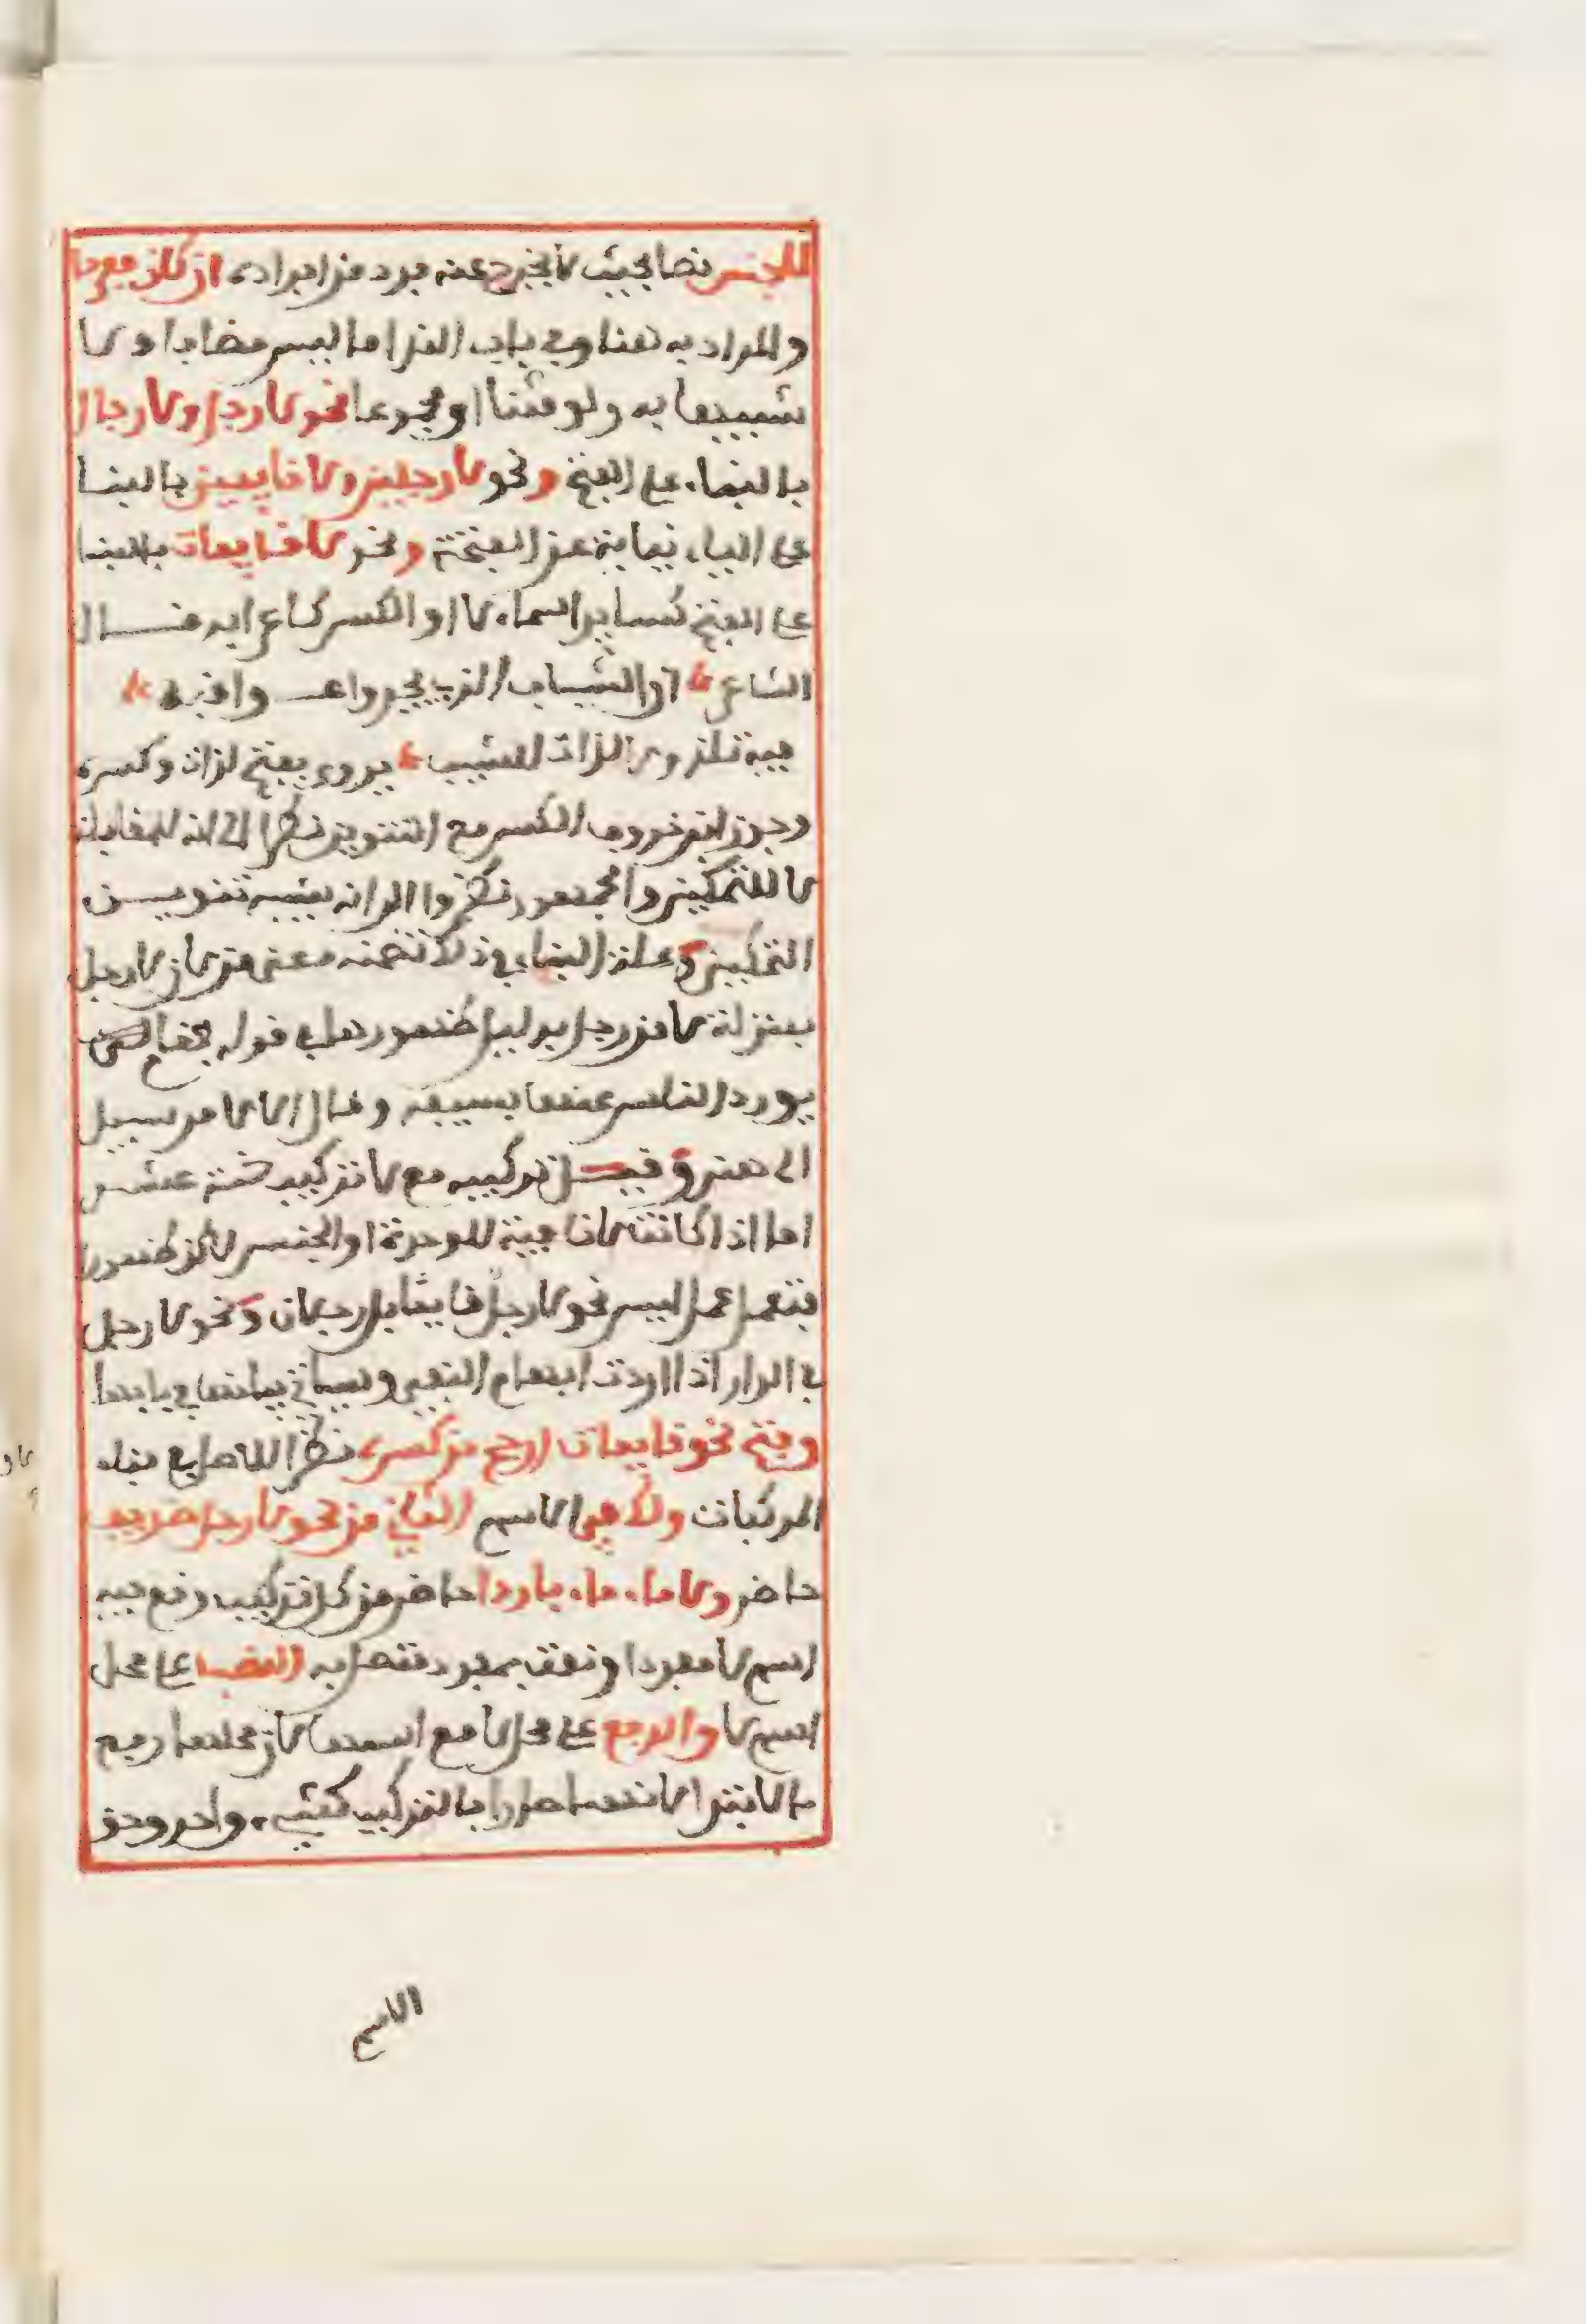 للجنس نصا بحيث لا يخرج عنه فرد من افراده ان كان مفردا
والمراد به هنا وفي باب الندا ما ليس مضافا ولا
شبيها به ولو مثنا او مجموعا نحو لا رجل ولا رجال
بالبناء على الفتح ونحو لا رجلين ولا قايمين بالبنا
على الياء نيابة عن الفتحة ونحو لا قايمات بالبنا
على الفتح كساير اسماء لا او الكسر كاعرابه قال
الشاعر ان الشباب الذي مجد عواقبه
فيه نلذ ولا لذات للشيب يروى بفتح لذات وكسره
وجوز ابن خروف الكسر مع التنوين نظرا الى انه للمقابلة
لا للتمكين والجمهور نظروا الى انه يشبه تنوين
التمكين وعلة البناء في ذلك تضمنه معنى من لان لا رجل
بمنزلة لا من رجل بدليل ظهورها في قوله فقام
يورد الناس عنها بسيفه وقال الا لا من سبيل
الى هند وقيل تركيبه مع لا تركيب خمسة عشر
اما اذا كانت لا نافية للوحدة او الجنس لاكن ظهورا
فتعمل عمل ليس نحو لا رجل قايما بل رجلان ونحو لا رجل
في الدار اذا اردت ابهام النفي وسياتي بيانها في بابها
وفتح نحو قايمات ارجح من كسره نظرا للاصل في بناء
المركبات ولك في الاسم الثاني من نحو لا رجل ظريف
حاضر ولا ماء ماء باردا حاضر من كل تركيب وقع فيه
اسم لا مفردا ونعت بمفرد متصل به النصب على محل
اسم لا والرفع على محل لا مع اسمها لان محلهما رفع
بالابتدا لانهما صارا بالتركيب كشيء واحد وحق
الاسم